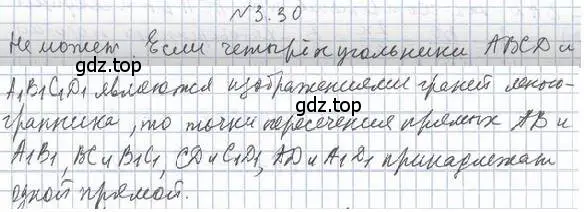 №3.30
Не может. Если четырёхугольники ABCD и
gdz.top gdz.top
A₁B₁C₁D₁ являются изображениями граней много-
гранника, то точки пересечения прямых AB и
A₁B₁, BC и B₁C₁, CD и C₁D₁, AD и A₁D₁ принадлежат
gdz.top gdz.top
одной прямой.